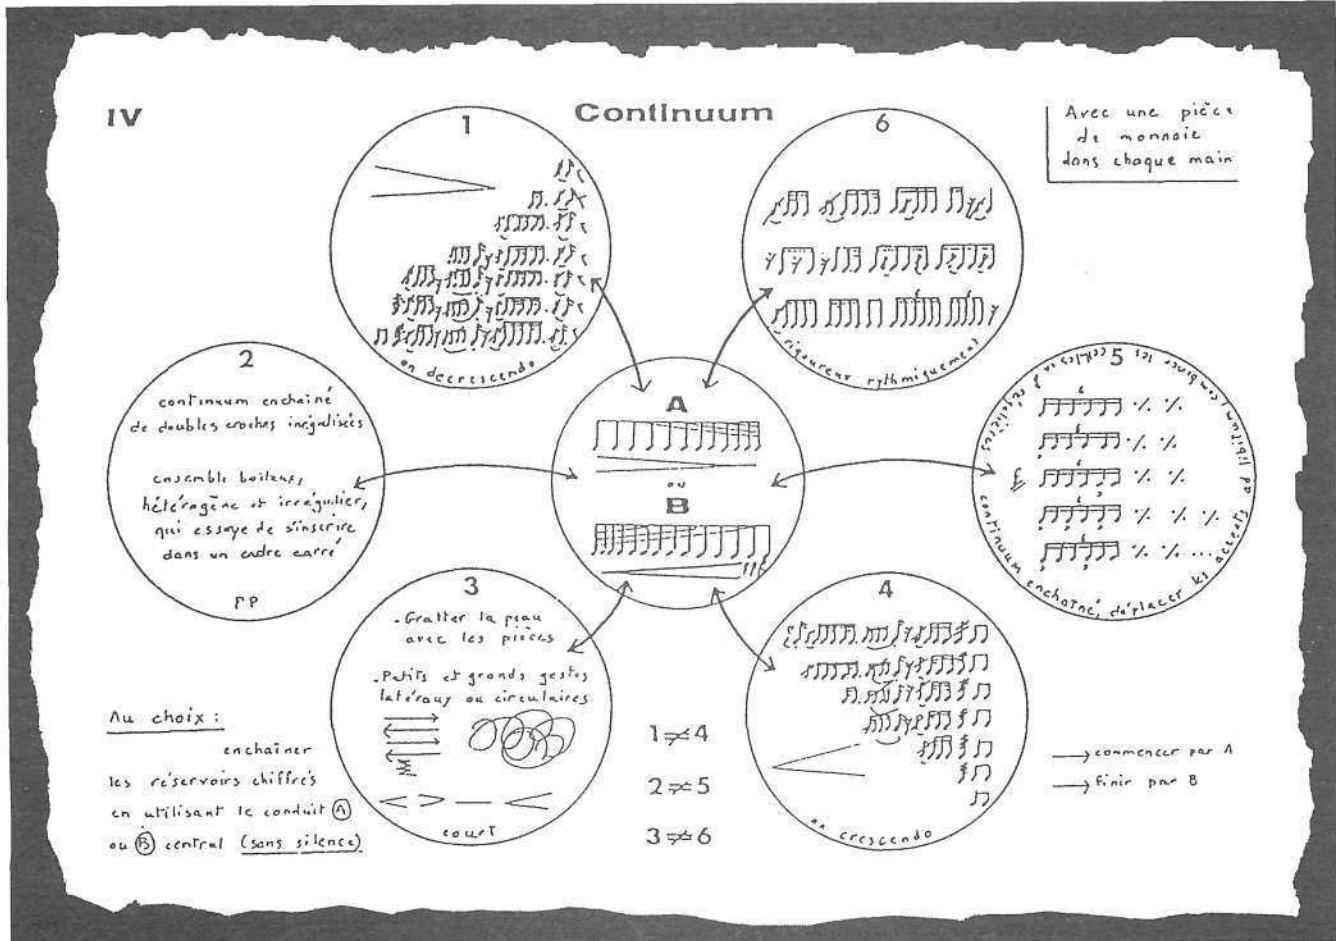 IV
Continuum
Avec une pièce
de monnaie
dans chaque main
1
en decrescendo
6
rigoureux rythmiquement
2
continuum enchaîné
de doubles croches inégalisées
ensemble boiteux,
hétérogène et irrégulier,
qui essaye de s'inscrire
dans un cadre carré
PP
A
ou
B
5
continuum enchaîné, déplacer les accents ad libitum, combiner les
3
- Gratter la peau
avec les pièces
- Petits et grands gestes
latéraux ou circulaires
court
4
en crescendo
Au choix :
enchaîner
les réservoirs chiffrés
en utilisant le conduit Ⓐ
ou Ⓑ central (sans silence)
1≠4
2≠5
3≠6
→ commencer par A
→ finir par B